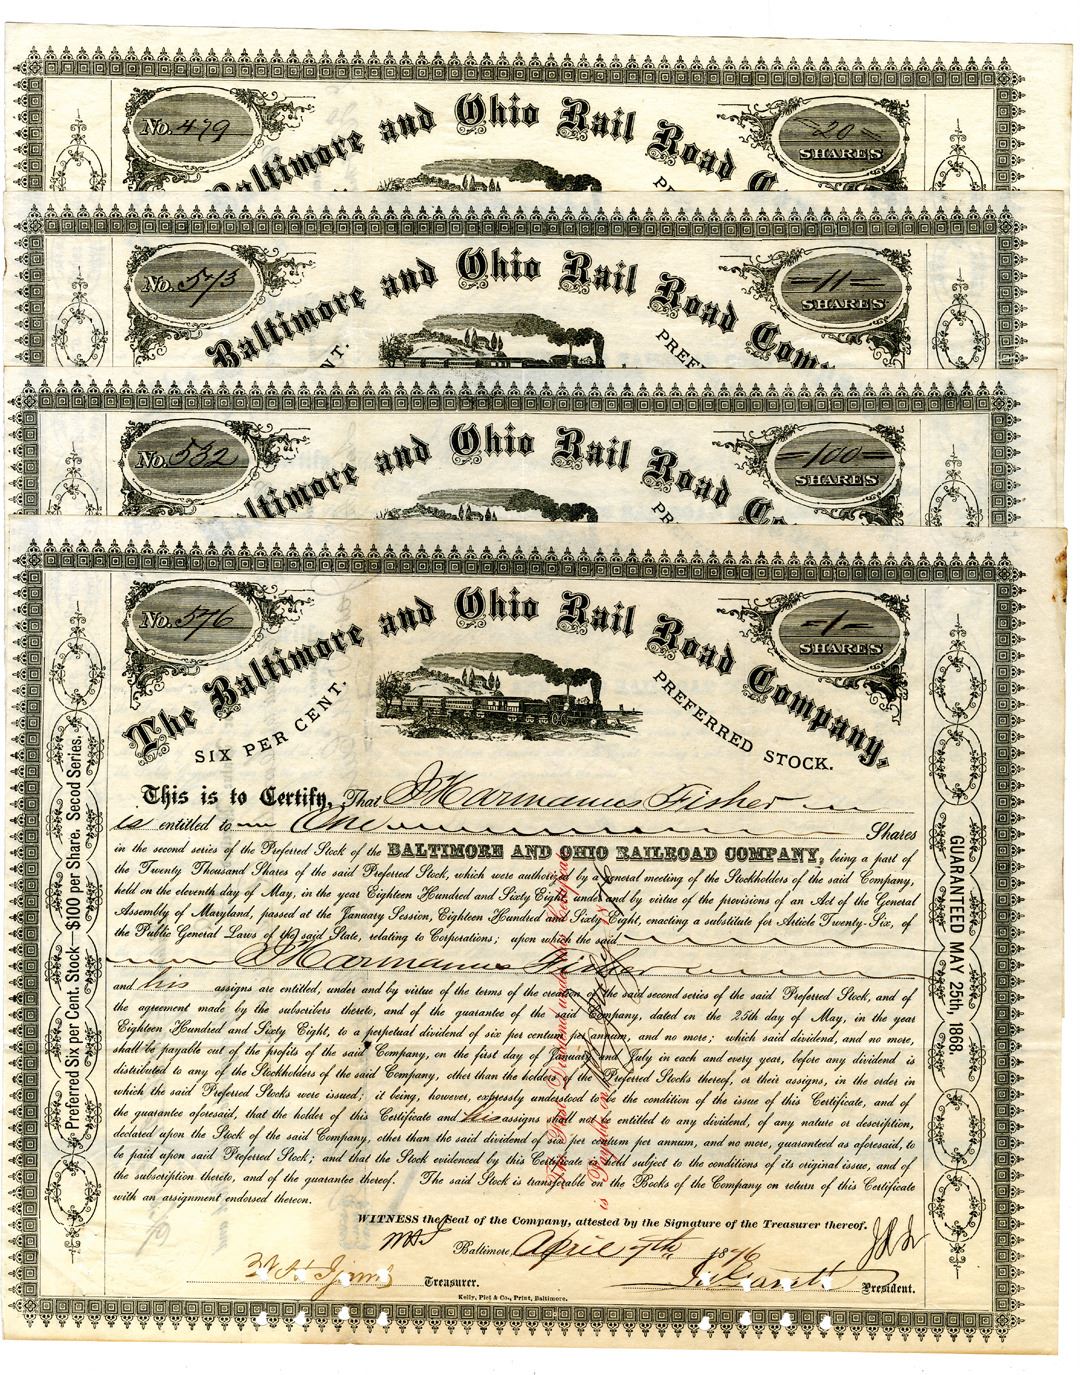 No. 479
Baltimore and Ohio Rail Road
20
SHARES
No. 573
Baltimore and Ohio Rail Road Com
11
SHARES
No. 532
Baltimore and Ohio Rail Road
100
SHARES
No. 576
The Baltimore and Ohio Rail Road Company,
1
SHARES
SIX PER CENT.
PREFERRED STOCK.
This is to Certify, That J Harmanus Fisher
is entitled to One Shares
in the second series of the Preferred Stock of the BALTIMORE AND OHIO RAILROAD COMPANY, being a part of
the Twenty Thousand Shares of the said Preferred Stock, which were authorized by a general meeting of the Stockholders of the said Company,
held on the eleventh day of May, in the year Eighteen Hundred and Sixty Eight, under and by virtue of the provisions of an Act of the General
Assembly of Maryland, passed at the January Session, Eighteen Hundred and Sixty Eight, enacting a substitute for Article Twenty-Six, of
the Public General Laws of the said State, relating to Corporations; upon which the said
J Harmanus Fisher
and his assigns are entitled, under and by virtue of the terms of the creation of the said second series of the said Preferred Stock, and of
the agreement made by the subscribers thereto, and of the guarantee of the said Company, dated on the 25th day of May, in the year
Eighteen Hundred and Sixty Eight, to a perpetual dividend of six per centum per annum, and no more; which said dividend, and no more,
shall be payable out of the profits of the said Company, on the first day of January and July in each and every year, before any dividend is
distributed to any of the Stockholders of the said Company, other than the holders of the Preferred Stocks thereof, or their assigns, in the order in
which the said Preferred Stocks were issued; it being, however, expressly understood to be the condition of the issue of this Certificate, and of
the guarantee aforesaid, that the holder of this Certificate and his assigns shall not be entitled to any dividend, of any nature or description,
declared upon the Stock of the said Company, other than the said dividend of six per centum per annum, and no more, guaranteed as aforesaid, to
be paid upon said Preferred Stock; and that the Stock evidenced by this Certificate is held subject to the conditions of its original issue, and of
the subscription thereto, and of the guarantee thereof. The said Stock is transferable on the Books of the Company on return of this Certificate
with an assignment endorsed thereon.
WITNESS the Seal of the Company, attested by the Signature of the Treasurer thereof.
Baltimore, April 7th, 1876
Treasurer.
J W Garrett President.
Kelly, Piet & Co., Print, Baltimore.
Preferred Six per Cent. Stock $100 per Share. Secod Series.
GUARANTEED MAY 25th, 1868.